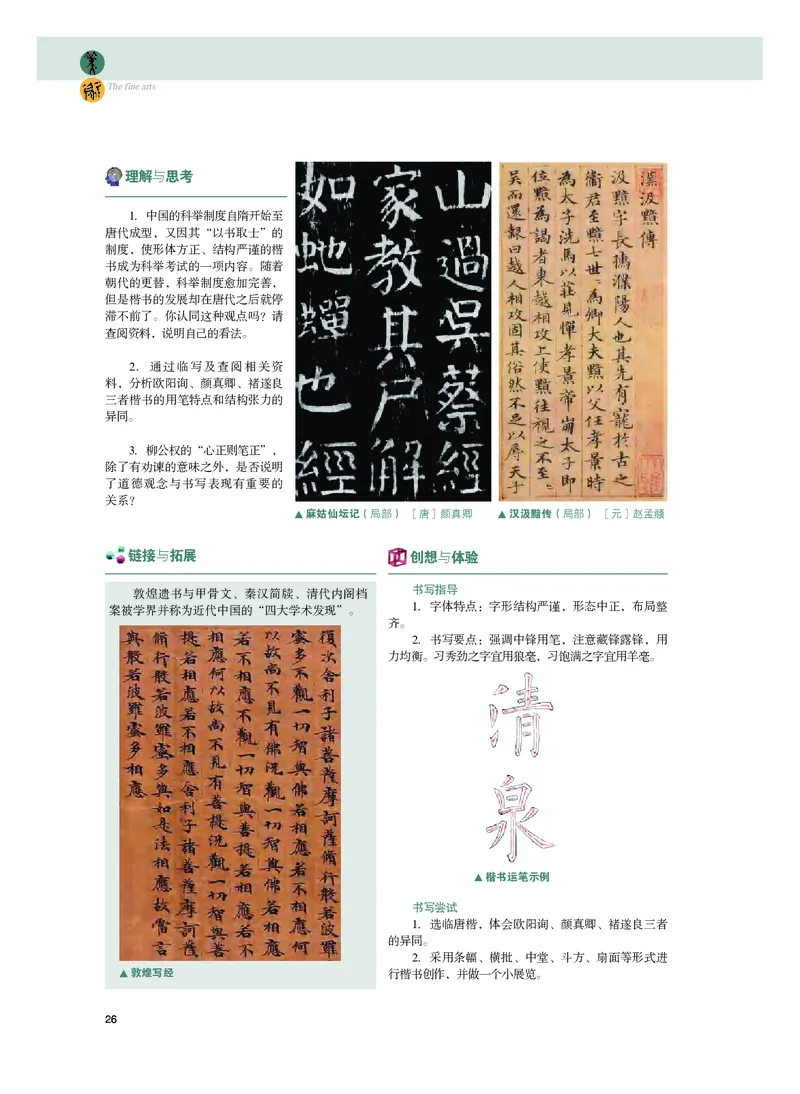 The fine arts
理解与思考
1. 中国的科举制度自隋开始至
唐代成型，又因其“以书取士”的
制度，使形体方正、结构严谨的楷
书成为科举考试的一项内容。随着
朝代的更替，科举制度愈加完善，
但是楷书的发展却在唐代之后就停
滞不前了。你认同这种观点吗？请
查阅资料，说明自己的看法。
2. 通过临写及查阅相关资
料，分析欧阳询、颜真卿、褚遂良
三者楷书的用笔特点和结构张力的
异同。
3. 柳公权的“心正则笔正”，
除了有劝谏的意味之外，是否说明
了道德观念与书写表现有重要的
关系？
山過吳蔡經
家教其尸解
如虵蟬也經
▲ 麻姑仙坛记（局部）［唐］颜真卿
漢汲黯傳
汲黯字長孺濮陽人也其先有寵於古之
衞君至黯七世為卿大夫黯以父任孝景時
為太子洗馬以莊見憚孝景帝崩太子即
位黯為謁者東越相攻上使黯往視之不至
吳而還報曰越人相攻固其俗然不足以辱天子
▲ 汉汲黯传（局部）［元］赵孟頫
链接与拓展
敦煌遗书与甲骨文、秦汉简牍、清代内阁档
案被学界并称为近代中国的“四大学术发现”。
復次舍利子諸菩薩摩訶薩脩行般若波羅
蜜多不觀一切智與佛若相應若不相應何
以故尚不見有佛況觀一切智與佛若相應
若不相應不觀一切智與菩提若相應若不
相應何以故尚不見有菩提況觀一切智與菩
提若相應若不相應舍利子諸菩薩摩訶薩
脩行般若波羅蜜多與如是法相應故當言
與般若波羅蜜多相應
▲ 敦煌写经
创想与体验
书写指导
1. 字体特点：字形结构严谨，形态中正，布局整
齐。
2. 书写要点：强调中锋用笔，注意藏锋露锋，用
力均衡。习秀劲之字宜用狼毫，习饱满之字宜用羊毫。
清
泉
▲ 楷书运笔示例
书写尝试
1. 选临唐楷，体会欧阳询、颜真卿、褚遂良三者
的异同。
2. 采用条幅、横批、中堂、斗方、扇面等形式进
行楷书创作，并做一个小展览。
26